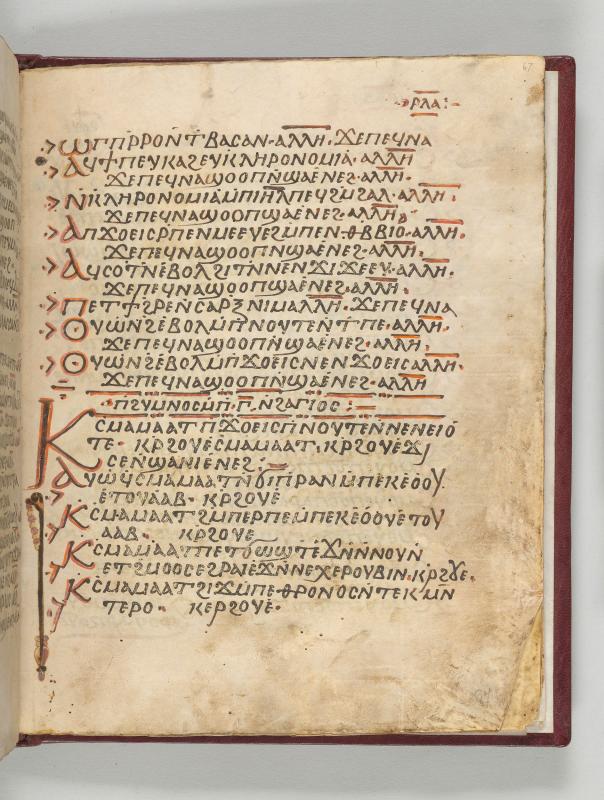 ⲣⲗⲁ:–
67
ⲱⲅⲡⲣⲣⲟⲛⲧⲃⲁⲥⲁⲛ·ⲁⲗⲗⲏ·ϫⲉⲡⲉϥⲛⲁ
ⲁϥϯⲡⲉⲩⲕⲁϩⲉⲩⲕⲗⲏⲣⲟⲛⲟⲙⲓⲁ·ⲁⲗⲗⲏ
ϫⲉⲡⲉϥⲛⲁϣⲟⲟⲡⲛ̀ϣⲁⲉⲛⲉϩ·ⲁⲗⲗⲏ·
ⲛ̀ⲕⲗⲏⲣⲟⲛⲟⲙⲓⲁⲙ̀ⲡⲓⲏ̅ⲗ̅ⲡⲉϥϩⲙ̀ϩⲁⲗ·ⲁⲗⲗⲏ·
ϫⲉⲡⲉϥⲛⲁϣⲟⲟⲡϣⲁⲉⲛⲉϩ·ⲁⲗⲗⲏ·
ⲁⲡϫⲟⲉⲓⲥⲣ̀ⲡⲉⲛⲙⲉⲉⲩⲉϩⲙ̀ⲡⲉⲛⲑⲃⲃⲓⲟ·ⲁⲗⲗⲏ·
ϫⲉⲡⲉϥⲛⲁϣⲟⲟⲡⲛ̀ϣⲁⲉⲛⲉϩ·ⲁⲗⲗⲏ·
ⲁϥⲥⲟⲧⲛ̀ⲉⲃⲟⲗϩⲓⲧⲛ̀ⲛⲉⲛϫⲓϫⲉⲉⲩ·ⲁⲗⲗⲏ·
ϫⲉⲡⲉϥⲛⲁϣⲟⲟⲡⲛ̀ϣⲁⲉⲛⲉϩ·ⲁⲗⲗⲏ·
ⲡⲉⲧϯϩⲣⲉⲛ̀ⲥⲁⲣⲝⲛⲓⲙ·ⲁⲗⲗⲏ·ϫⲉⲡⲉϥⲛⲁ
ⲟⲩⲱⲛϩⲉⲃⲟⲗⲙ̀ⲡⲛⲟⲩⲧⲉⲛⲧⲡⲉ·ⲁⲗⲗⲏ·
ϫⲉⲡⲉϥⲛⲁϣⲟⲟⲡⲛ̀ϣⲁⲉⲛⲉϩ·ⲁⲗⲗⲏ·
ⲟⲩⲱⲛϩⲉⲃⲟⲗⲙ̀ⲡϫⲟⲉⲓⲥⲛⲉⲛϫⲟⲉⲓⲥ·ⲁⲗⲗⲏ·
ϫⲉⲡⲉϥⲛⲁϣⲟⲟⲡⲛ̀ϣⲁⲉⲛⲉϩ·ⲁⲗⲗⲏ
ⲡϩⲩⲙⲛⲟⲥⲙ̀ⲡ·ⲅ̅·ⲛ̀ϩⲁⲅⲓⲟⲥ:–
ⲕⲥⲙⲁⲙⲁⲁⲧⲡϫⲟⲉⲓⲥⲡⲛⲟⲩⲧⲉⲛ̀ⲛⲉⲛⲉⲓⲟ
ⲧⲉ· ⲕⲣϩⲟⲩⲉⲥⲙⲁⲙⲁⲁⲧ·ⲕⲣϩⲟⲩⲉϫⲓ
ⲥⲉⲛ̀ϣⲁⲛⲓⲉⲛⲉϩ:–
ⲁⲩⲱϥⲥⲙⲁⲙⲁⲁⲧⲛ̀ϭⲓⲡⲣⲁⲛⲙ̀ⲡⲉⲕⲉⲟⲟⲩ
ⲉⲧⲟⲩⲁⲁⲃ· ⲕⲣϩⲟⲩⲉ
ⲕⲥⲙⲁⲙⲁⲁⲧϩⲙ̀ⲡⲉⲣⲡⲉⲙ̀ⲡⲉⲕⲉⲟⲟⲩⲉⲧⲟⲩ
ⲁⲁⲃ· ⲕⲣϩⲟⲩⲉ
ⲕⲥⲙⲁⲙⲁⲁⲧⲡⲉⲧϭⲱϣⲧⲉϫⲛ̀ⲛⲛⲟⲩⲛ
ⲉⲧϩⲙⲟⲟⲥⲉϩⲣⲁⲓⲉϫⲛ̀ⲛⲉⲭⲉⲣⲟⲩⲃⲓⲛ·ⲕⲣϩⲟⲩⲉ·
ⲕⲥⲙⲁⲙⲁⲁⲧϩⲓϫⲙ̀ⲡⲉⲑⲣⲟⲛⲟⲥⲛ̀ⲧⲉⲕⲙⲛ̀
ⲧⲉⲣⲟ· ⲕⲉⲣϩⲟⲩⲉ·